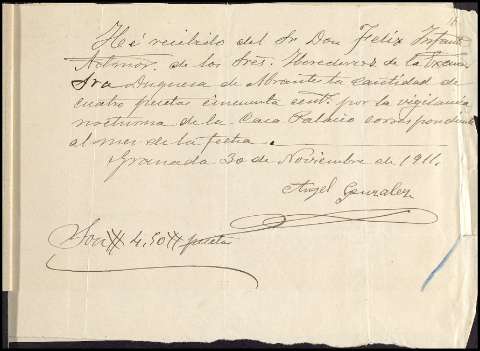 Hé recibido del Sr. Don Felix Infante
Admor. de los Sres. Herederos de la Excma.
Sra Duquesa de Abrantes la cantidad de
cuatro pesetas cincuenta cent. por la vigilancia
nocturna de la Casa Palacio correspondiente
al mes de la fecha.
Granada 30 de Noviembre de 1911.
Angel Gonzalez
Son # 4,50 # pesetas